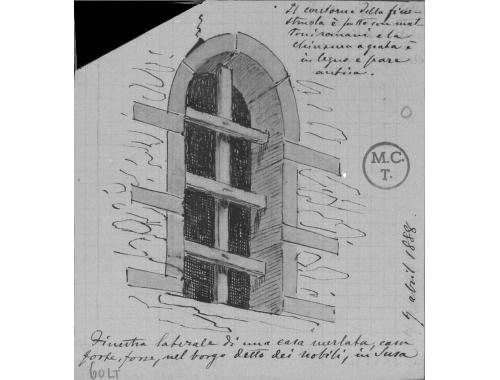 Il contorno della fine-
è fatto con mat
toni romani e la
chiusura a grata è
in legno e pare
antica.
M.C.
T.
9 abril 1888.
Finestra laterale di una casa merlata, casa
forte, forse, nel borgo detto dei nobili, in Susa